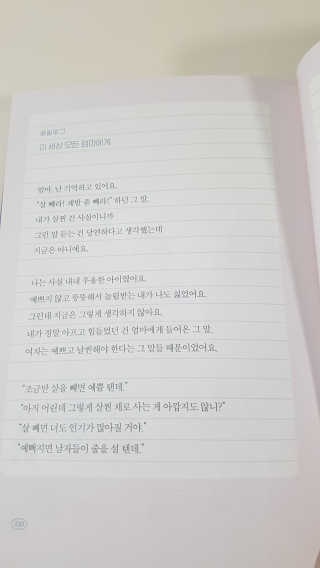 프롤로그
이 세상 모든 엄마에게
엄마, 난 기억하고 있어요.
"살 빼라! 제발 좀 빼라!" 하던 그 말.
내가 살찐 건 사실이니까
그런 말 듣는 건 당연하다고 생각했는데
지금은 아니에요.
나는 사실 내내 우울한 아이였어요.
예쁘지 않고 뚱뚱해서 놀림받는 내가 나도 싫었어요.
그런데 지금은 그렇게 생각하지 않아요.
내가 정말 아프고 힘들었던 건 엄마에게 들어온 그 말,
여자는 예쁘고 날씬해야 한다는 그 말들 때문이었어요.
"조금만 살을 빼면 예쁠 텐데."
"아직 어린데 그렇게 살찐 채로 사는 게 아깝지도 않니?"
"살 빼면 너도 인기가 많아질 거야."
"예뻐지면 남자들이 줄을 설 텐데."